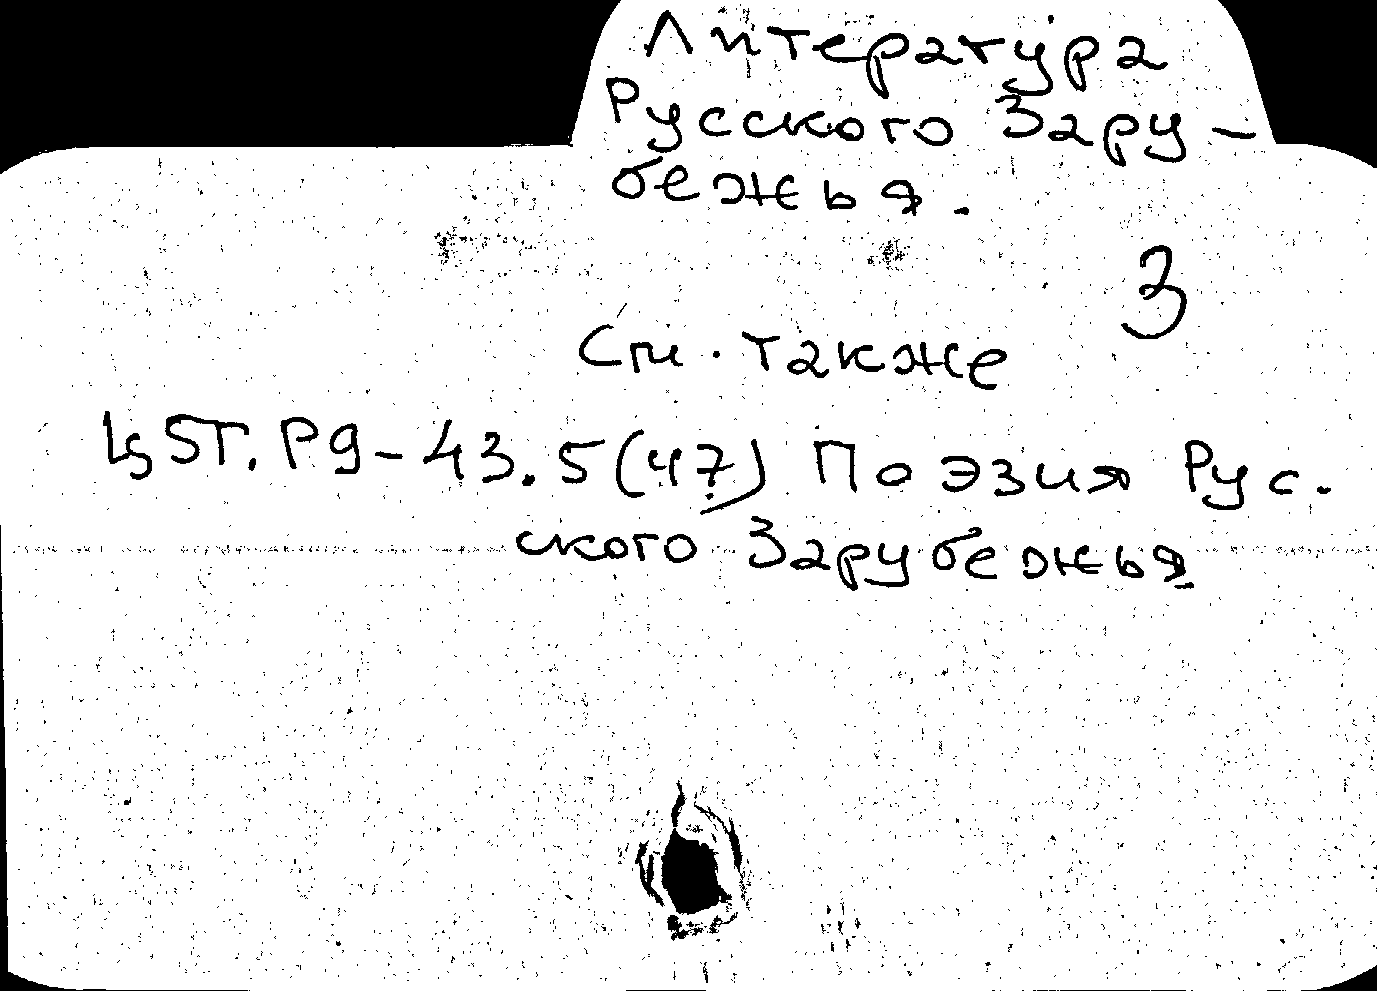 Литература
Русского Зару-
бежья.
3
См. также
ST. P9-43.5(47) Поэзия Рус.
ского Зарубежья